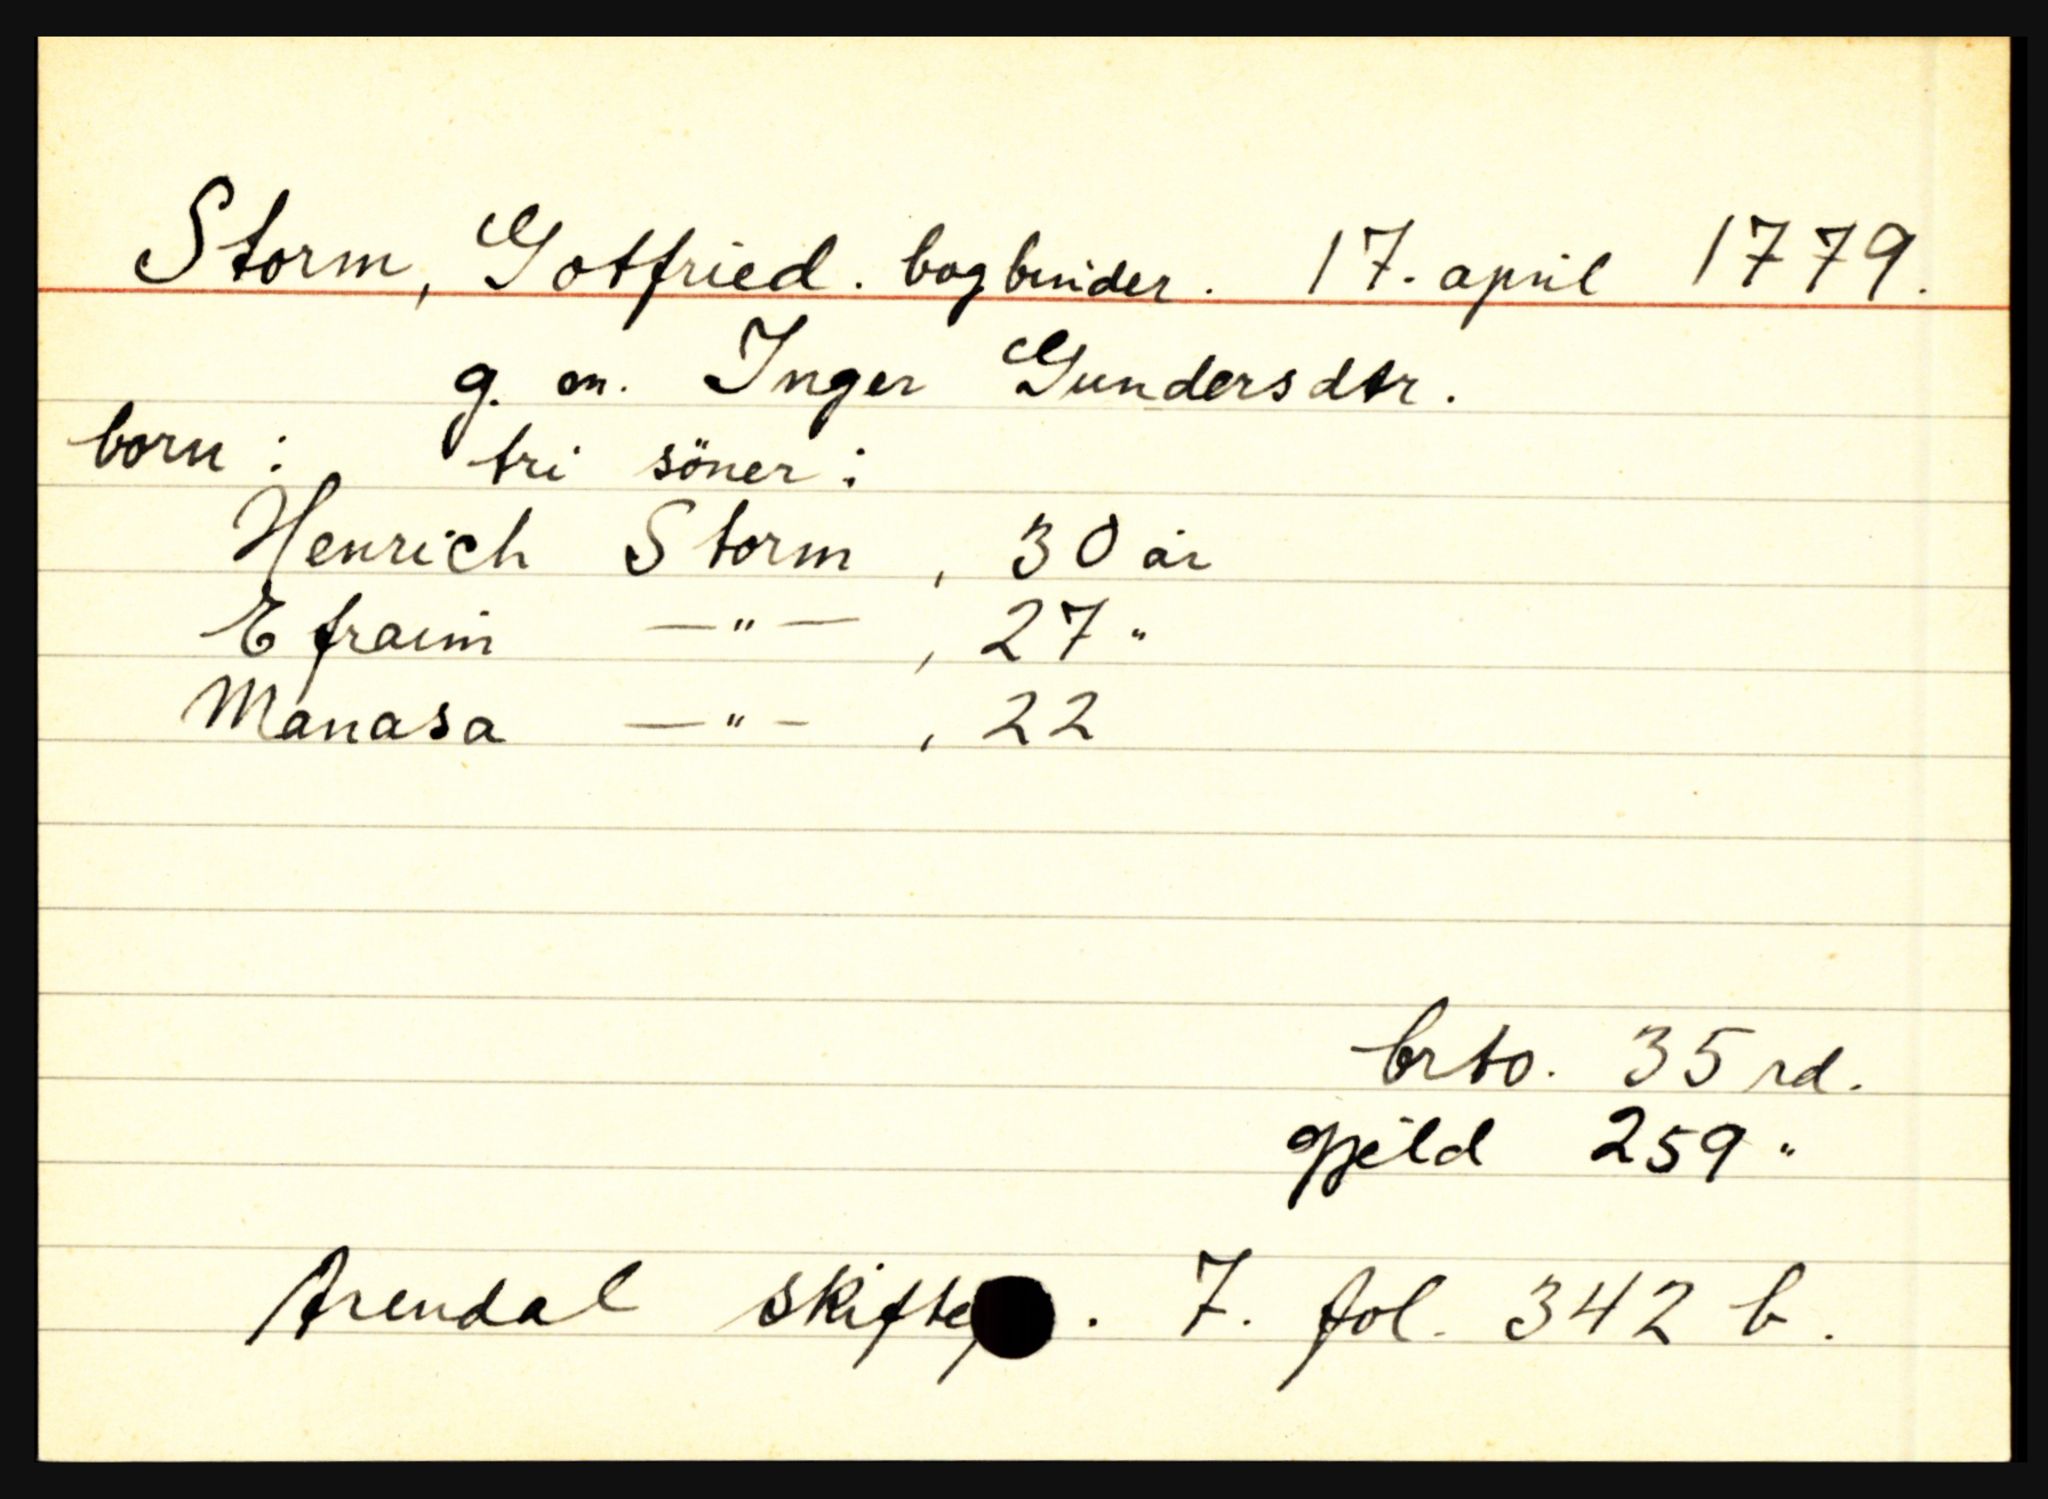 Storm, Gotfried. bogbinder. 17. april 1779.
g. m. Inger Gundersdtr.
born: tri söner:
Henrich Storm, 30 år
Efraim —"—, 27 "
Manasa —"—, 22
brto. 35 rd.
gjeld 259 "
Arendal skifte . 7. fol. 342 b.